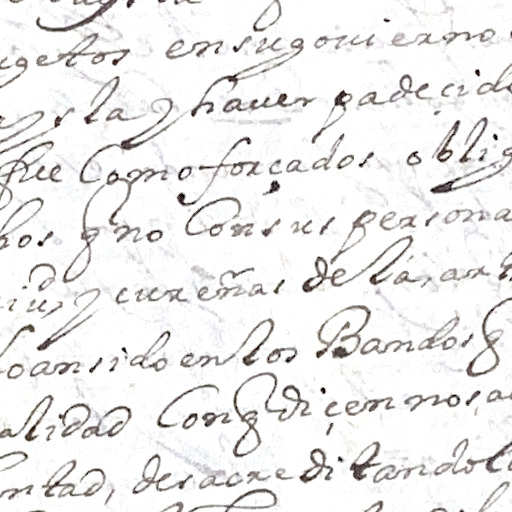 ugetos ensugouierno
ysla y hauer padeçido
fue Como forçados oblig
hos q no Con sus persona
y cureñas de la, ar
oansido en los Bandos q
alidad Con q diçen nos, a
ntad, desacreditandolo